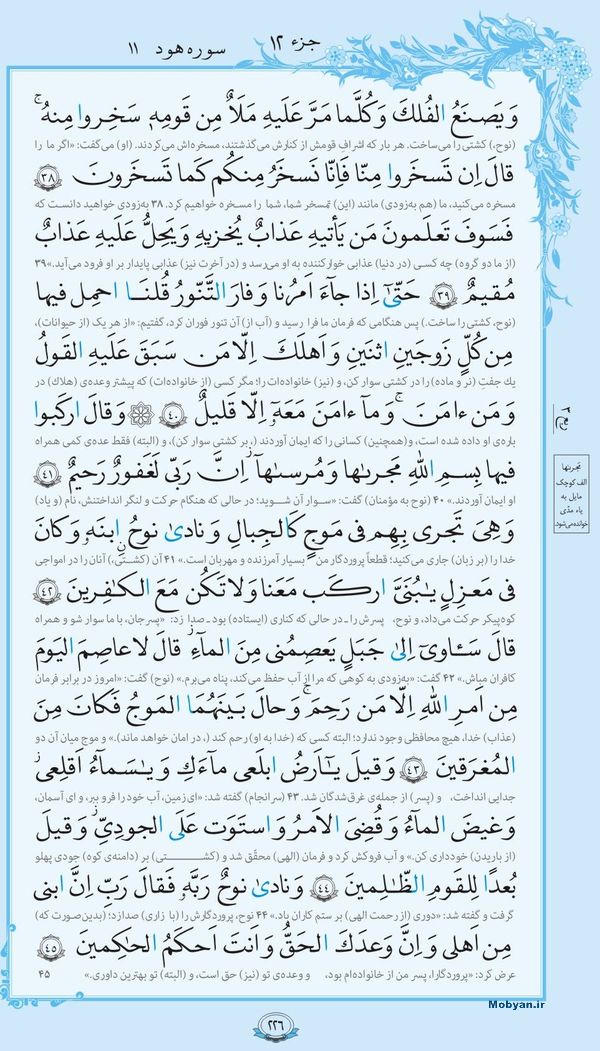 جزء ۱۲
سوره هود ۱۱
وَ يَصنَعُ الفُلكَ وَ كُلَّما مَرَّ عَلَيهِ مَلَاٌ مِن قَومِهٖ سَخِروا مِنهُ ۚ
(نوح،) کشتی را می‌ساخت. هر بار که اشراف قومش از کنارش می‌گذشتند، مسخره‌اش می‌کردند. (او) می‌گفت: «اگر ما را
قالَ اِن تَسخَروا مِنّا فَاِنّا نَسخَرُ مِنكُم كَما تَسخَرونَ ۳۸
مسخره می‌کنید، ما (هم به‌زودی) مانند (این) تمسخر شما، شما را مسخره خواهیم کرد. ۳۸ به‌زودی خواهید دانست که
فَسَوفَ تَعلَمونَ مَن يَأتيهِ عَذابٌ يُخزيهِ وَ يَحِلُّ عَلَيهِ عَذابٌ
(از ما دو گروه) چه کسی (در دنیا) عذابی خوارکننده به او می‌رسد و (در آخرت نیز) عذابی پایدار بر او فرود می‌آید.» ۳۹
مُقيمٌ ۳۹ حَتّىٰٓ اِذا جآءَ اَمرُنا وَ فارَ التَّنّورُ قُلنَا احمِل فيها
(نوح، کشتی را ساخت.) پس هنگامی که فرمان ما فرا رسید و (آب از) آن تنور فوران کرد، گفتیم: «از هر یک (از حیوانات)،
مِن كُلٍّ زَوجَينِ اثنَينِ وَ اَهلَكَ اِلّا مَن سَبَقَ عَلَيهِ القَولُ
یك جفتِ (نر و ماده) را در کشتی سوار کن، و (نیز) خانواده‌ات را؛ مگر کسی (از خانواده‌ات) که پیشتر وعده‌ی (هلاک) در
وَ مَن ءامَنَ ۚ وَ ما ءامَنَ مَعَهٗٓ اِلّا قَليلٌ ۴۰ وَ قالَ اركَبوا
باره‌ی او داده شده است، و (همچنین) کسانی را که ایمان آوردند (، بر کشتی سوار کن)، و (البته) فقط عده‌ی کمی همراه
فيها بِسمِ اللهِ مَجرىٰها وَ مُرسىٰهآ ۚ اِنَّ رَبّى لَغَفورٌ رَحيمٌ ۴۱
او ایمان آوردند.» ۴۰ (نوح به مؤمنان) گفت: «سوار آن شوید؛ در حالی که هنگام حرکت و لنگر انداختنش، نام (و یاد)
وَ هِىَ تَجرى بِهِم فى مَوجٍ كَالجِبالِ وَ نادىٰ نوحٌ ابنَهٗ وَ كانَ
خدا را (بر زبان) جاری می‌کنید؛ قطعاً پروردگار من بسیار آمرزنده و مهربان است.» ۴۱ آن (کشتی)، آنان را در امواجی
فى مَعزِلٍ يٰبُنَىَّ اركَب مَعَنا وَ لا تَكُن مَعَ الكٰفِرينَ ۴۲
کوه‌پیکر حرکت می‌داد، و نوح، پسرش را ـ در حالی که کناری (ایستاده) بود ـ صدا زد: «پسرجان، با ما سوار شو و همراه
قالَ سَـٔاوىٓ اِلىٰ جَبَلٍ يَعصِمُنى مِنَ المآءِ ۚ قالَ لا عاصِمَ اليَومَ
کافران مباش.» ۴۲ گفت: «به‌زودی به کوهی که مرا از آب حفظ می‌کند، پناه می‌برم.» (نوح) گفت: «امروز در برابر فرمان
مِن اَمرِ اللهِ اِلّا مَن رَحِمَ ۚ وَ حالَ بَينَهُمَا المَوجُ فَكانَ مِنَ
(عذاب) خدا، هیچ محافظی وجود ندارد؛ البته کسی که (خدا به او) رحم کند (، در امان خواهد ماند).» و موج میان آن دو
المُغرَقينَ ۴۳ وَ قيلَ يٰٓاَرضُ ابلَعى مآءَكِ وَ يٰسَمآءُ اَقلِعى
جدایی انداخت، و (پسر) از جمله‌ی غرق‌شدگان شد. ۴۳ (سرانجام) گفته شد: «ای زمین، آب خود را فرو ببر، و ای آسمان،
وَ غيضَ المآءُ وَ قُضِىَ الاَمرُ وَ استَوَت عَلَى الجودِىِّ ۖ وَ قيلَ
(از باریدن) خودداری کن.» و آب فروکش کرد و فرمان (الهی) محقّق شد و (کشتی) بر (دامنه‌ی کوه) جودی پهلو
بُعدًا لِلقَومِ الظّٰلِمينَ ۴۴ وَ نادىٰ نوحٌ رَبَّهٗ فَقالَ رَبِّ اِنَّ ابنى
گرفت و گفته شد: «دوری (از رحمت الهی) بر ستم کاران باد.» ۴۴ نوح، پروردگارش را (با زاری) صدا زد؛ (بدین‌صورت که)
مِن اَهلى وَ اِنَّ وَعدَكَ الحَقُّ وَ اَنتَ اَحكَمُ الحٰكِمينَ ۴۵
عرض کرد: «پروردگارا، پسر من از خانواده‌ام بود، و وعده‌ی تو (نیز) حق است، و (البته) تو بهترین داوری.» ۴۵
مَجرىٰها
الف کوچک
مایل به
یاء مدّی
خوانده می‌شود.
۲۲۶
Mobyan.ir